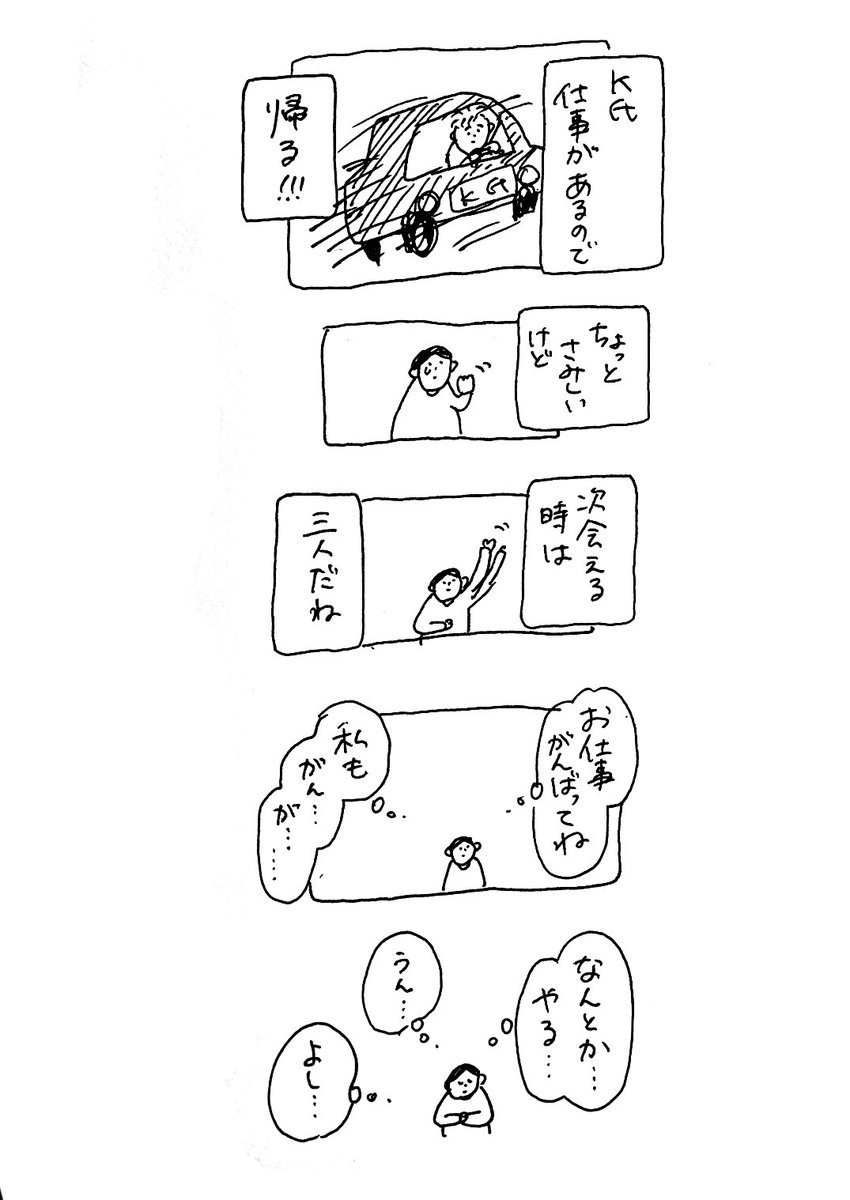 K氏
仕事があるので
K氏
帰る!!!
ちょっと
さみしい
けど
次会える
時は
三人だね
お仕事
がんばってね
私も
がん…
が……
なんとか…
やる…
うん…
よし…